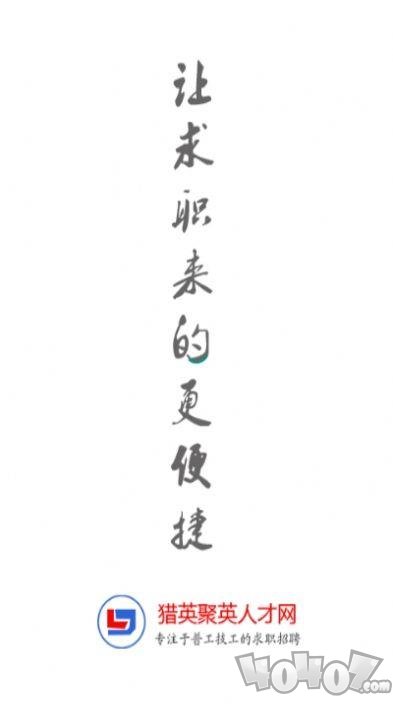 让求职来的更便捷
猎英聚英人才网
专注于普工技工的求职招聘
40407.com